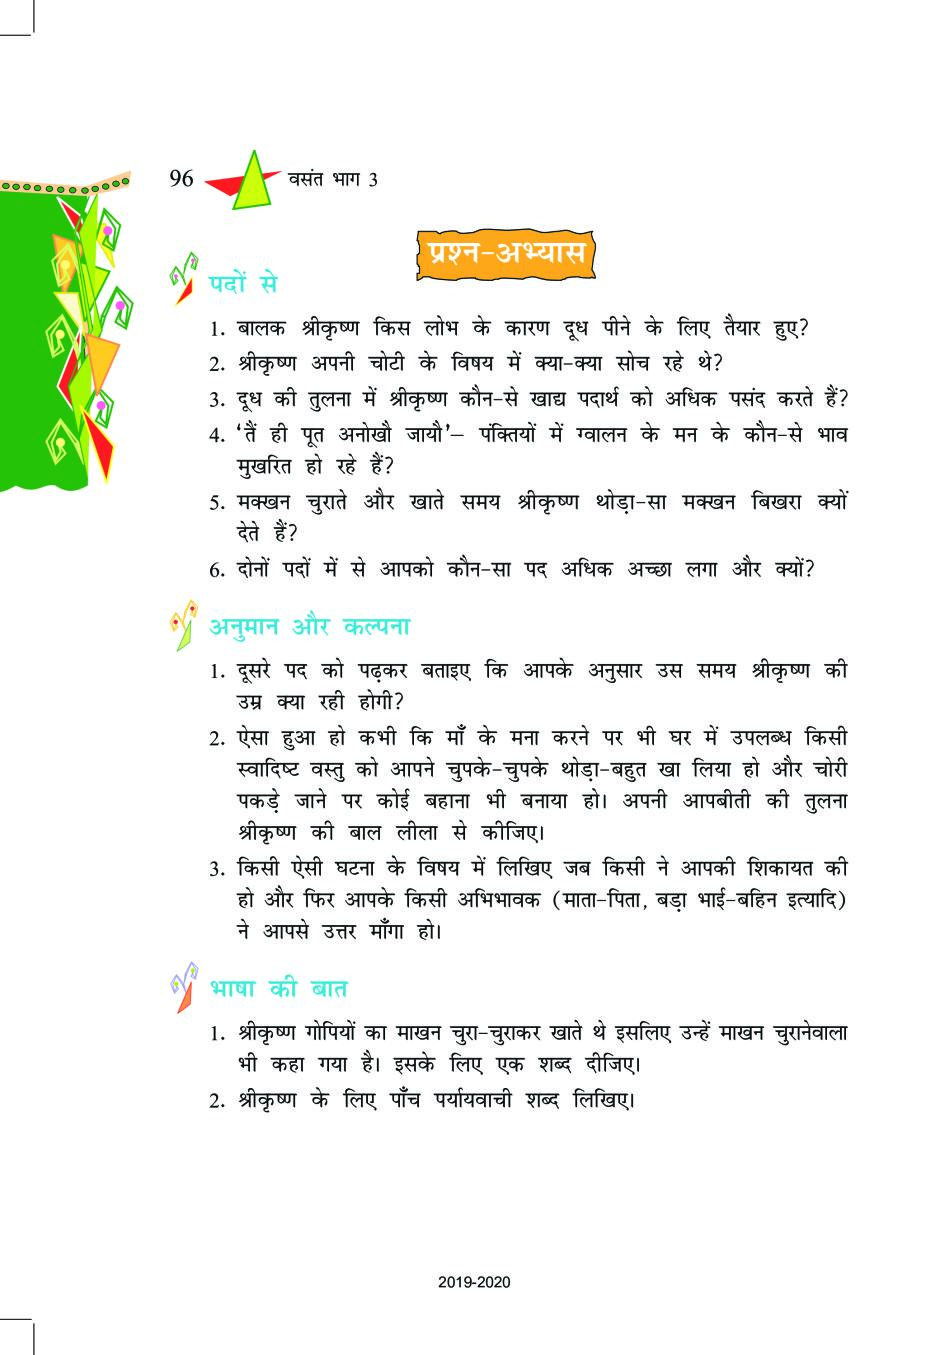 96 वसंत भाग 3
प्रश्न-अभ्यास
पदों से
1. बालक श्रीकृष्ण किस लोभ के कारण दूध पीने के लिए तैयार हुए?
2. श्रीकृष्ण अपनी चोटी के विषय में क्या-क्या सोच रहे थे?
3. दूध की तुलना में श्रीकृष्ण कौन-से खाद्य पदार्थ को अधिक पसंद करते हैं?
4. 'तैं ही पूत अनोखौ जायौ'– पंक्तियों में ग्वालन के मन के कौन-से भाव
मुखरित हो रहे हैं?
5. मक्खन चुराते और खाते समय श्रीकृष्ण थोड़ा-सा मक्खन बिखरा क्यों
देते हैं?
6. दोनों पदों में से आपको कौन-सा पद अधिक अच्छा लगा और क्यों?
अनुमान और कल्पना
1. दूसरे पद को पढ़कर बताइए कि आपके अनुसार उस समय श्रीकृष्ण की
उम्र क्या रही होगी?
2. ऐसा हुआ हो कभी कि माँ के मना करने पर भी घर में उपलब्ध किसी
स्वादिष्ट वस्तु को आपने चुपके-चुपके थोड़ा-बहुत खा लिया हो और चोरी
पकड़े जाने पर कोई बहाना भी बनाया हो। अपनी आपबीती की तुलना
श्रीकृष्ण की बाल लीला से कीजिए।
3. किसी ऐसी घटना के विषय में लिखिए जब किसी ने आपकी शिकायत की
हो और फिर आपके किसी अभिभावक (माता-पिता, बड़ा भाई-बहिन इत्यादि)
ने आपसे उत्तर माँगा हो।
भाषा की बात
1. श्रीकृष्ण गोपियों का माखन चुरा-चुराकर खाते थे इसलिए उन्हें माखन चुरानेवाला
भी कहा गया है। इसके लिए एक शब्द दीजिए।
2. श्रीकृष्ण के लिए पाँच पर्यायवाची शब्द लिखिए।
2019-2020